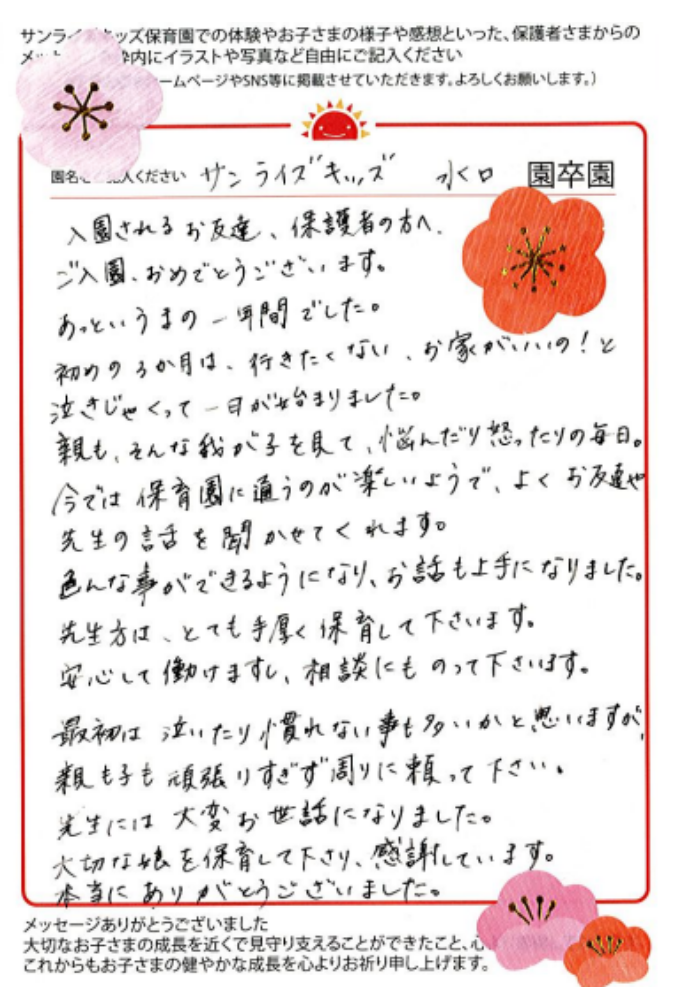 サンライズキッズ保育園での体験やお子さまの様子や感想といった、保護者さまからの
メッ 枠内にイラストや写真など自由にご記入ください
ームページやSNS等に掲載させていただきます。よろしくお願いします。）
園名 記入ください サンライズキッズ 水口 園卒園
入園されるお友達、保護者の方へ。
ご入園、おめでとうございます。
あっというまの一年間でした。
初めの3か月は、行きたくない、お家がいいの！と
泣きじゃくって一日が始まりました。
親も、そんな我が子を見て、悩んだり怒ったりの毎日。
今では保育園に通うのが楽しいようで、よくお友達や
先生の話を聞かせてくれます。
色んな事ができるようになり、お話も上手になりました。
先生方は、とても手厚く保育して下さいます。
安心して働けますし、相談にものって下さいます。
最初は泣いたり慣れない事も多いかと思いますが、
親も子も頑張りすぎず周りに頼って下さい。
先生には大変お世話になりました。
大切な娘を保育して下さり、感謝しています。
本当にありがとうございました。
メッセージありがとうございました
大切なお子さまの成長を近くで見守り支えることができたこと、心
これからもお子さまの健やかな成長を心よりお祈り申し上げます。